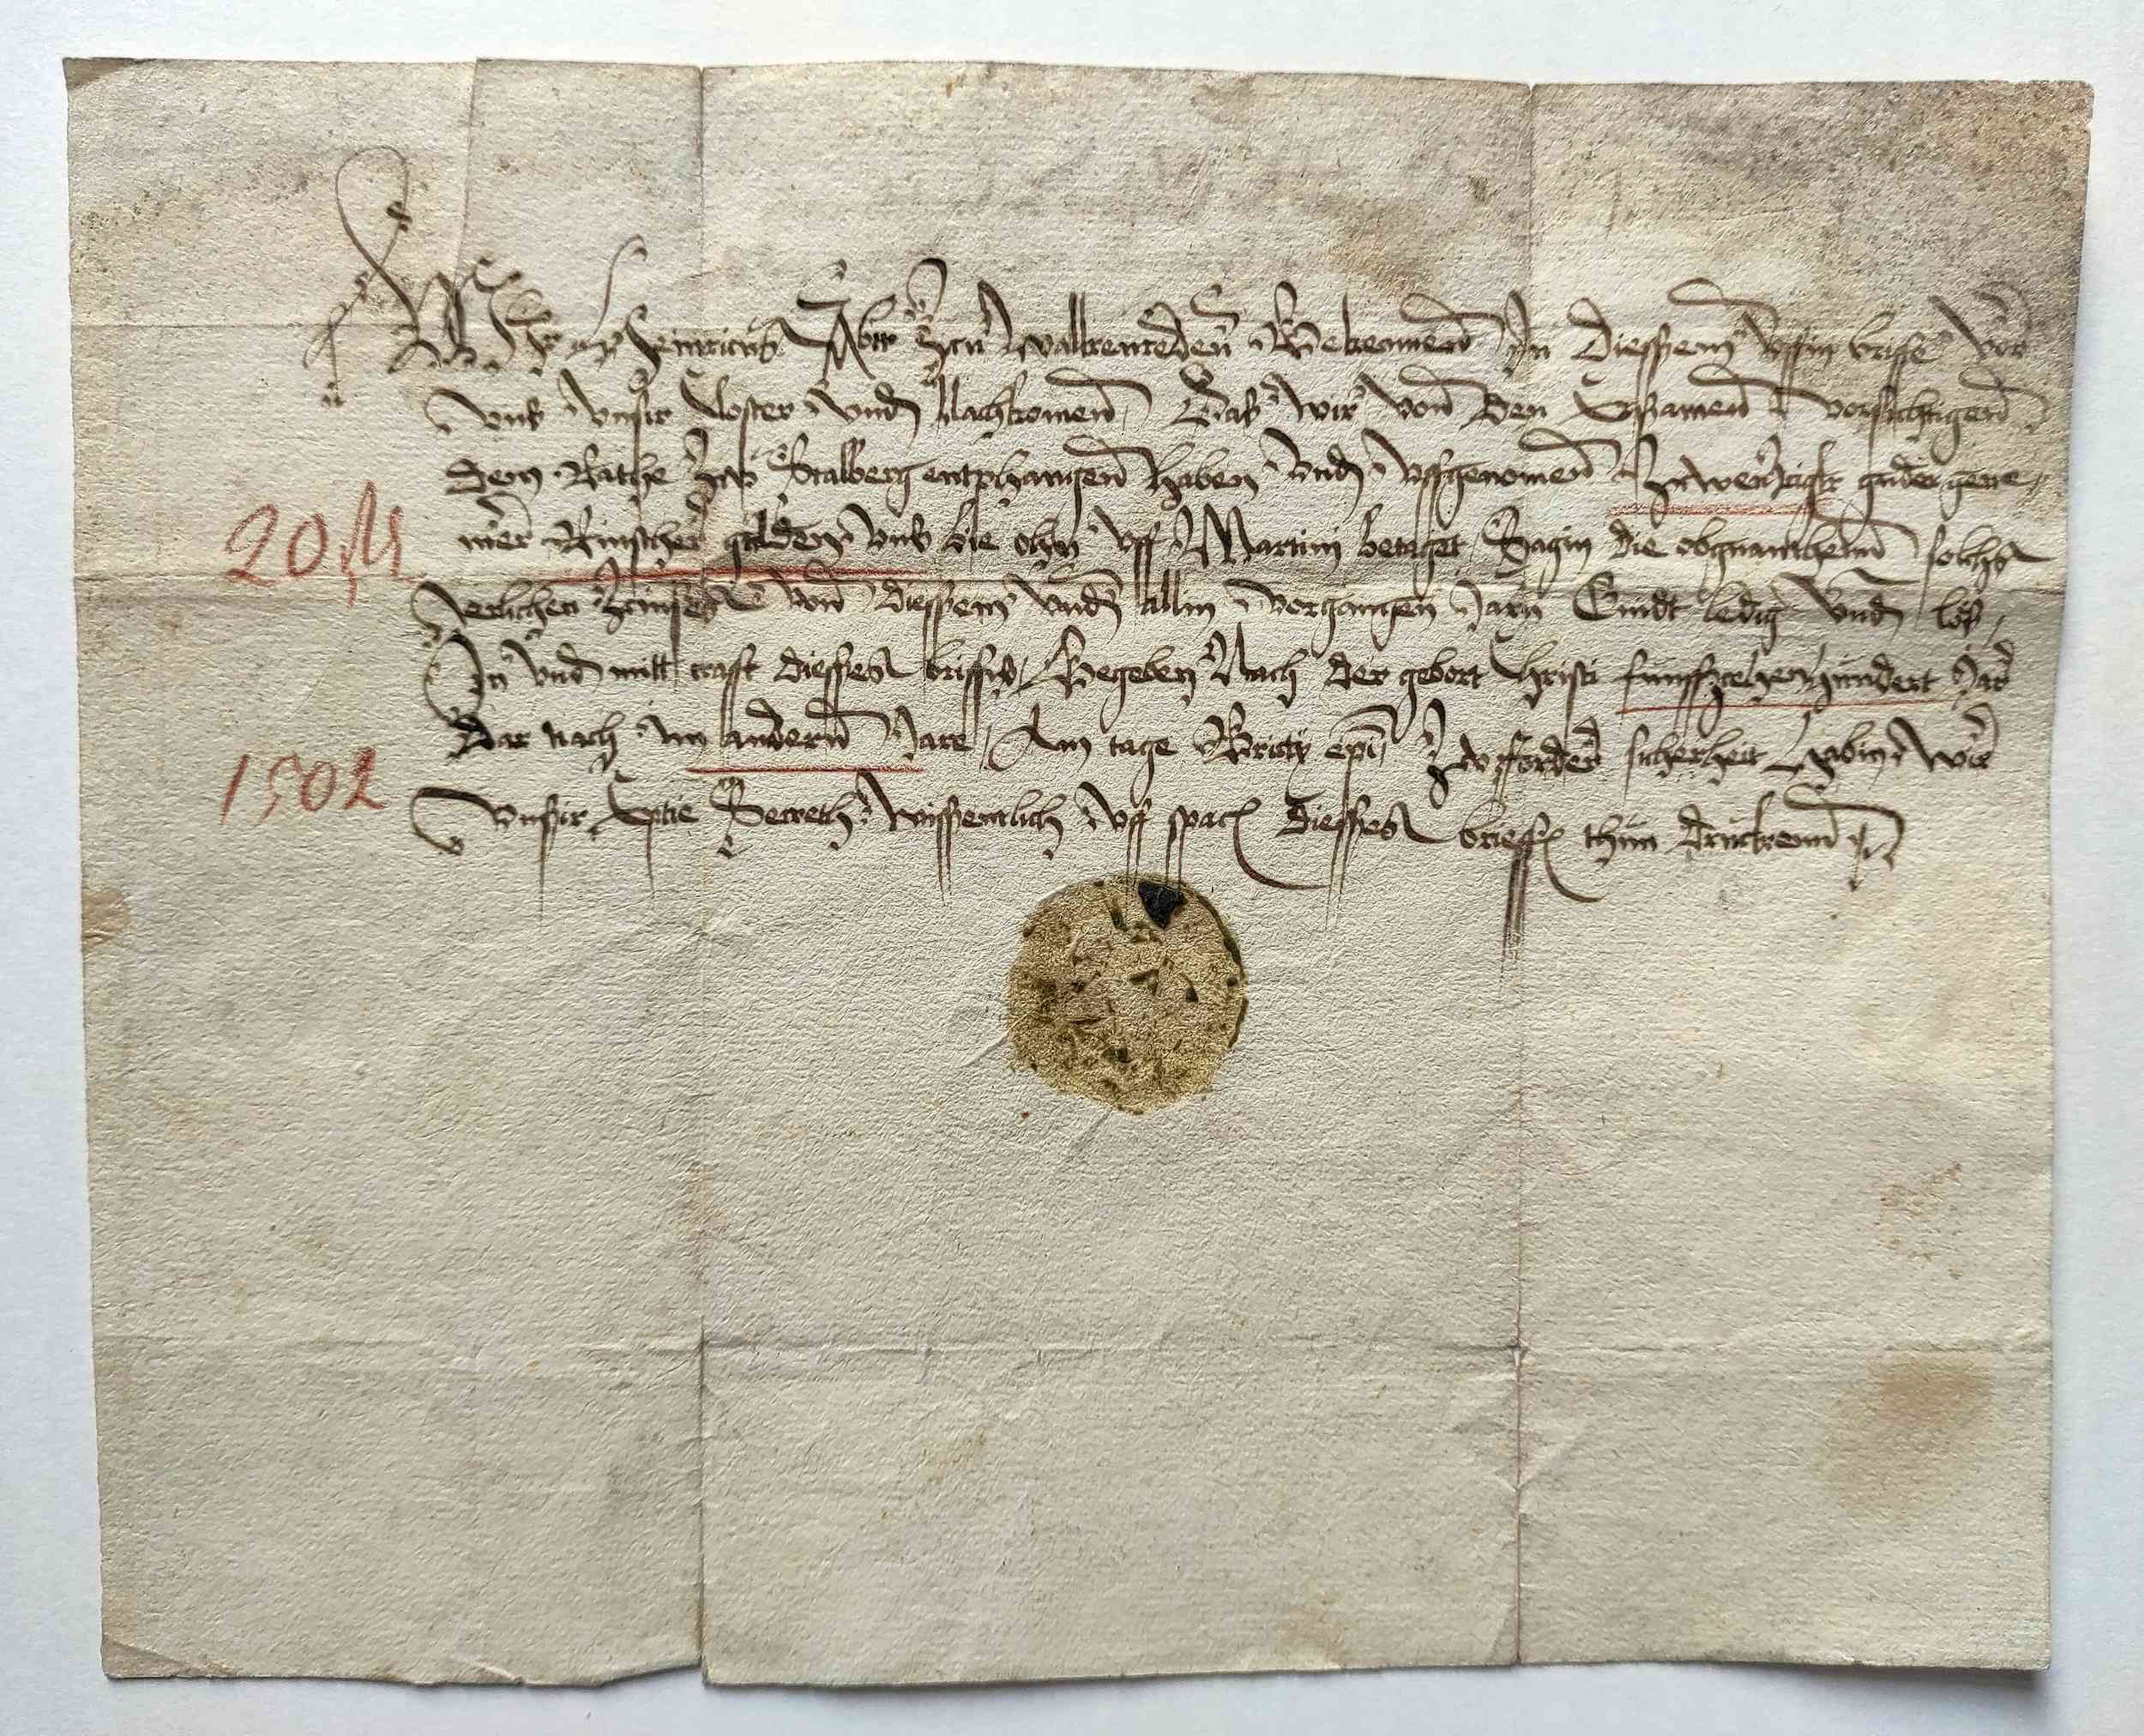 Wir Heinricus Abt zcu Walkenreden Bekennen In diesszem uffin briffe vor
uns unsir Closter und Nachkomen, Das wir von den Ersamen vorsichtigen
dem Rathe zcu Stalberg entphangen haben und uffgenomen zwenzcigk guder gene
mer Rinscher gulden uns die uff Martini betaget, Sagin die obgnanthenn solchs
Jerlichen zcinses von diesszem und allin vorgangen Jarn Quidt ledig und los,
In und mitt crafft diesses briffis, Gegeben Nach der gebort Christi funffzcehenhundert Jar
20 fl
Dar nach im andern Jare, Am tage Brictij epi, zcu forder sicherheit habin wir
1502
unszir Eptie Secreth wisszentlich uff spacz diesszes brieffs thun druckenn